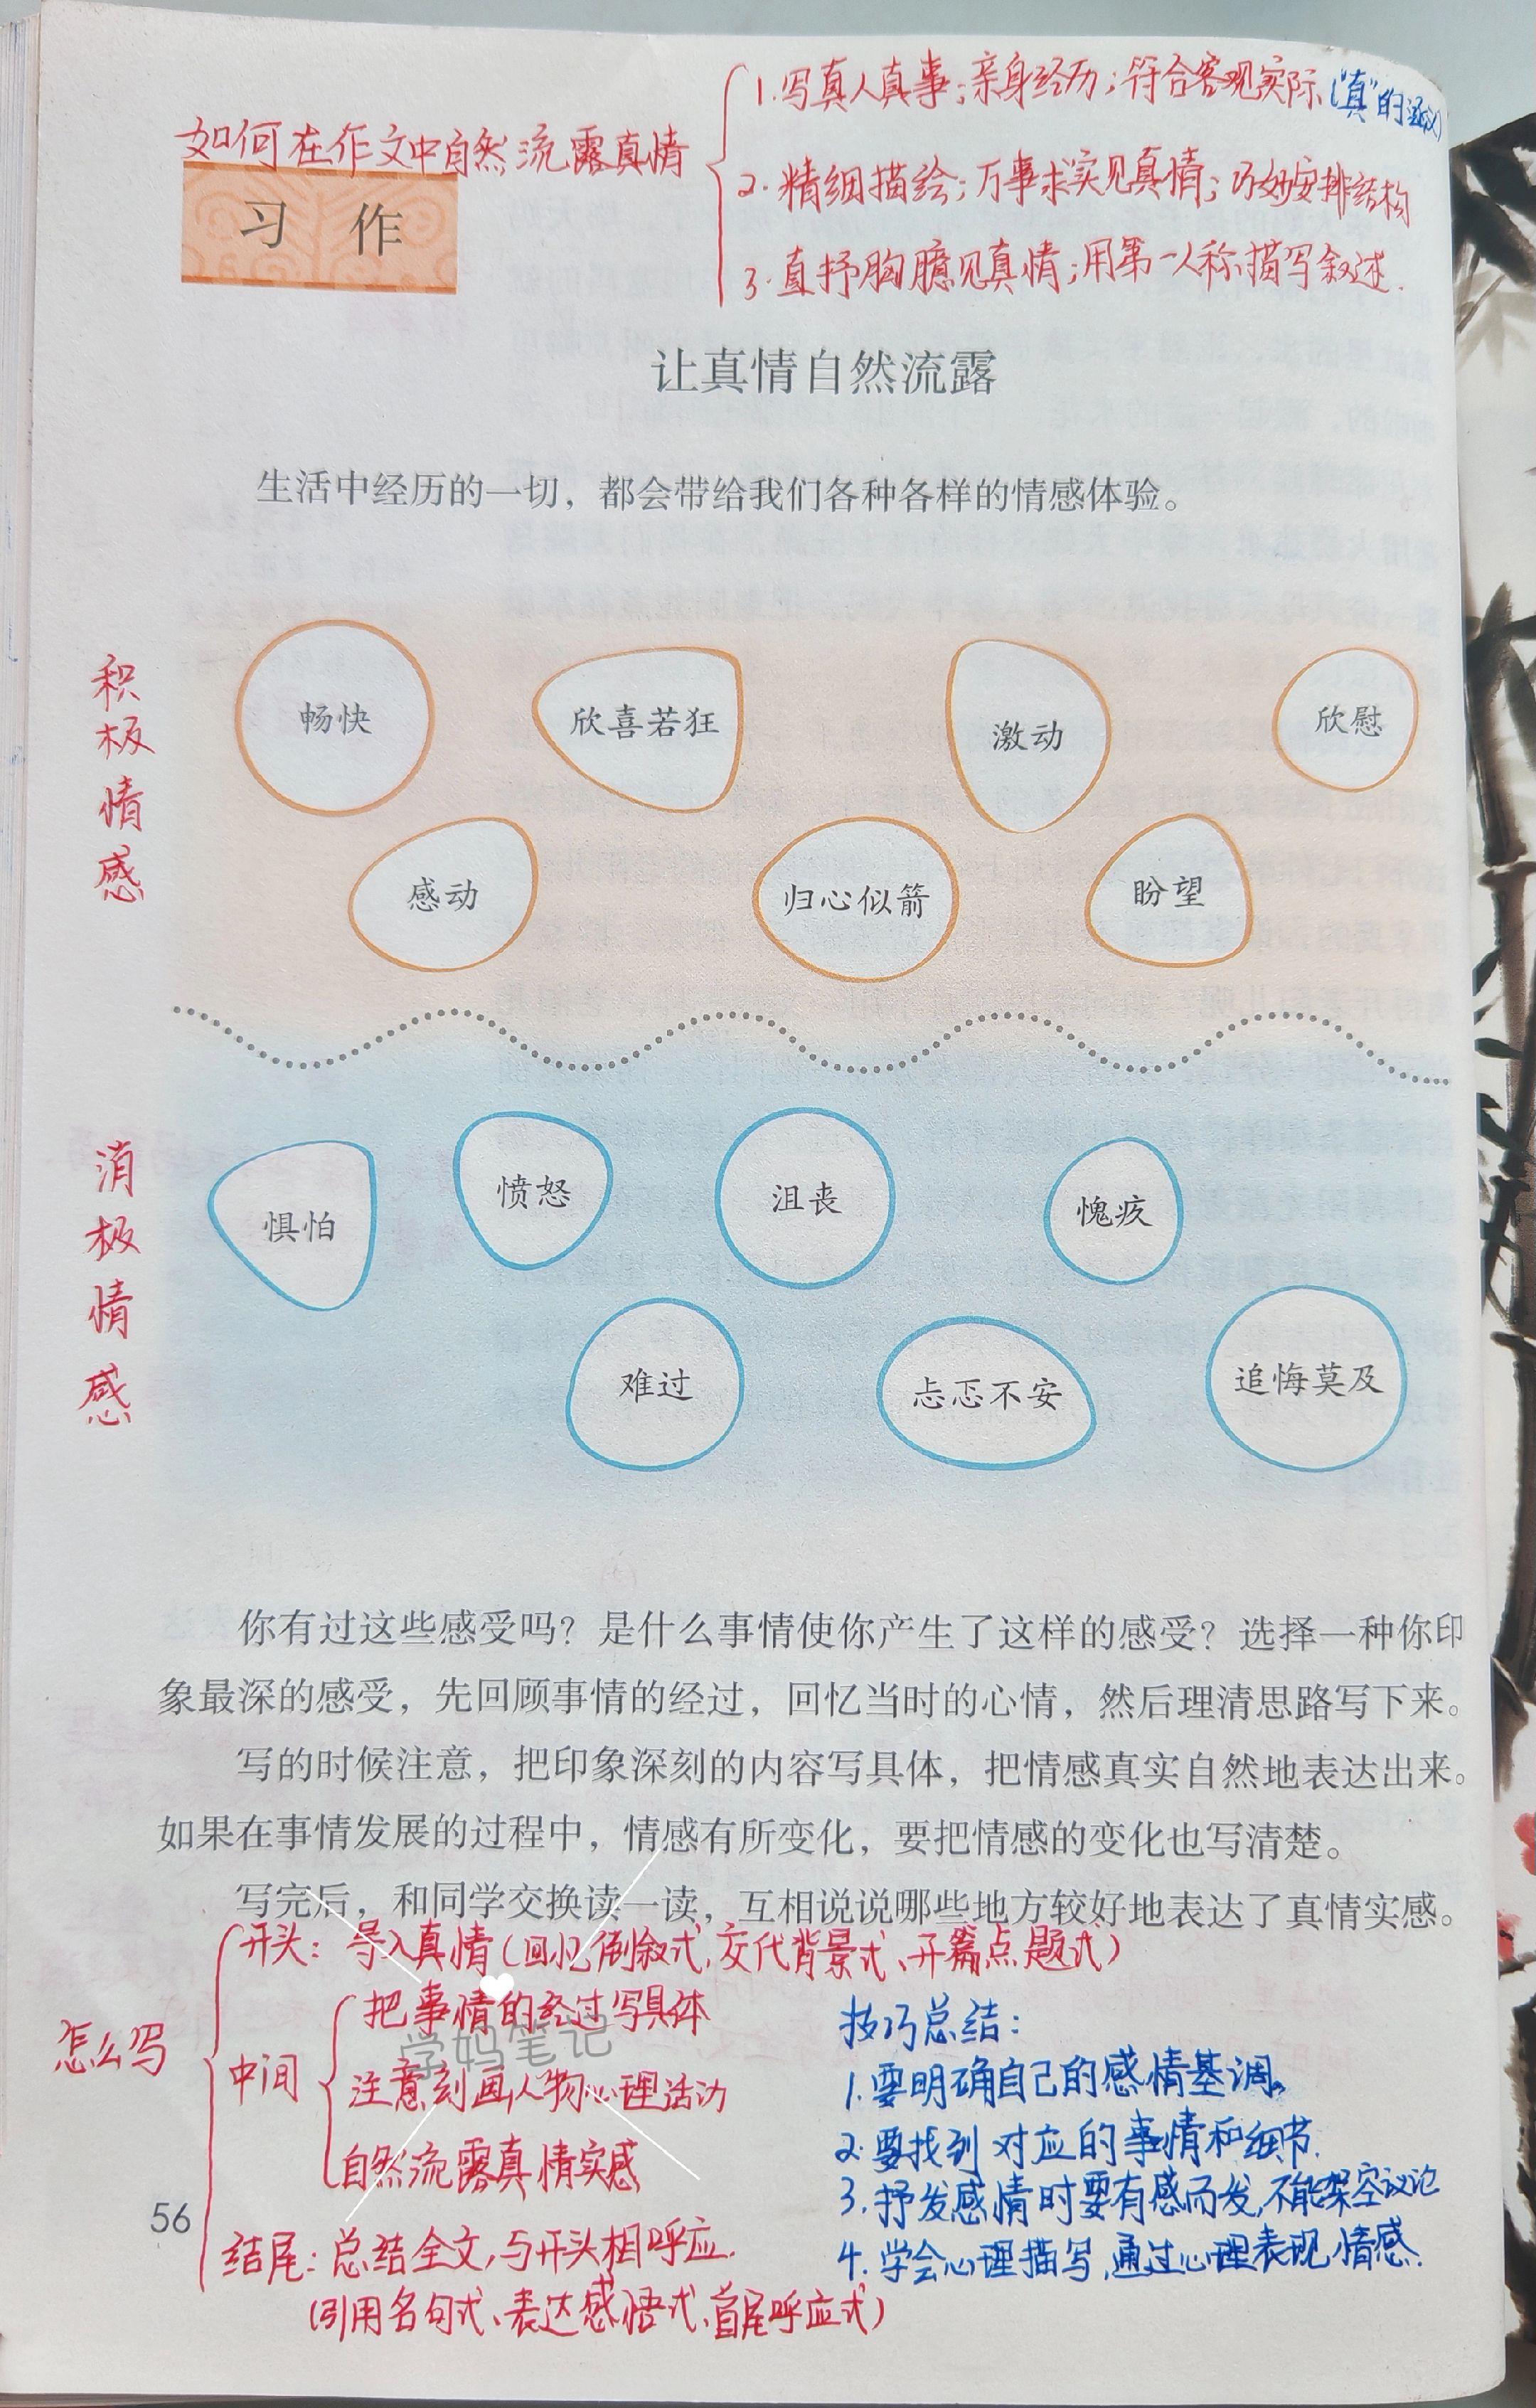 如何在作文中自然流露真情
1.写真人真事;亲身经历;符合客观实际("真"的涵义)
2.精细描绘;万事求实见真情;巧妙安排结构
3.直抒胸臆见真情;用第一人称描写叙述.
习 作
让真情自然流露
生活中经历的一切，都会带给我们各种各样的情感体验。
积极情感
畅快
欣喜若狂
激动
欣慰
感动
归心似箭
盼望
消极情感
惧怕
愤怒
沮丧
愧疚
难过
忐忑不安
追悔莫及
你有过这些感受吗？是什么事情使你产生了这样的感受？选择一种你印
象最深的感受，先回顾事情的经过，回忆当时的心情，然后理清思路写下来。
写的时候注意，把印象深刻的内容写具体，把情感真实自然地表达出来。
如果在事情发展的过程中，情感有所变化，要把情感的变化也写清楚。
写完后，和同学交换读一读，互相说说哪些地方较好地表达了真情实感。
怎么写
开头：导入真情(回忆倒叙式、交代背景式、开篇点题式)
中间
把事情的经过写具体
注意刻画人物心理活动
自然流露真情实感
结尾：总结全文,与开头相呼应.
(引用名句式、表达感悟式、首尾呼应式)
技巧总结：
1.要明确自己的感情基调。
2.要找到对应的事情和细节.
3.抒发感情时要有感而发,不能架空议论
4.学会心理描写,通过心理表现情感.
学妈笔记
56